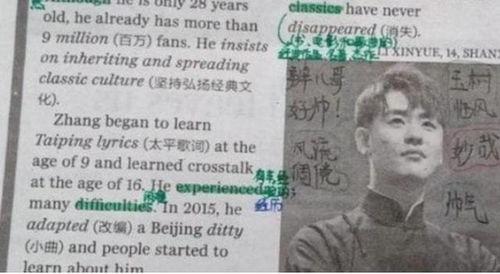 Although he is only 28 years
old, he already has more than
9 million (百万) fans. He insists
on inheriting and spreading
classic culture (坚持弘扬经典文
化).
Zhang began to learn
Taiping lyrics (太平歌词) at the
age of 9 and learned crosstalk
at the age of 16. He experienced
many difficulties. In 2015, he
adapted (改编) a Beijing ditty
(小曲) and people started to
learn about him
困难
经历
classics have never
disappeared (消失).
XINYUE, 14, SHAN
辫儿哥
好帅!
风流
倜傥
玉树
临风
妙哉
帅气